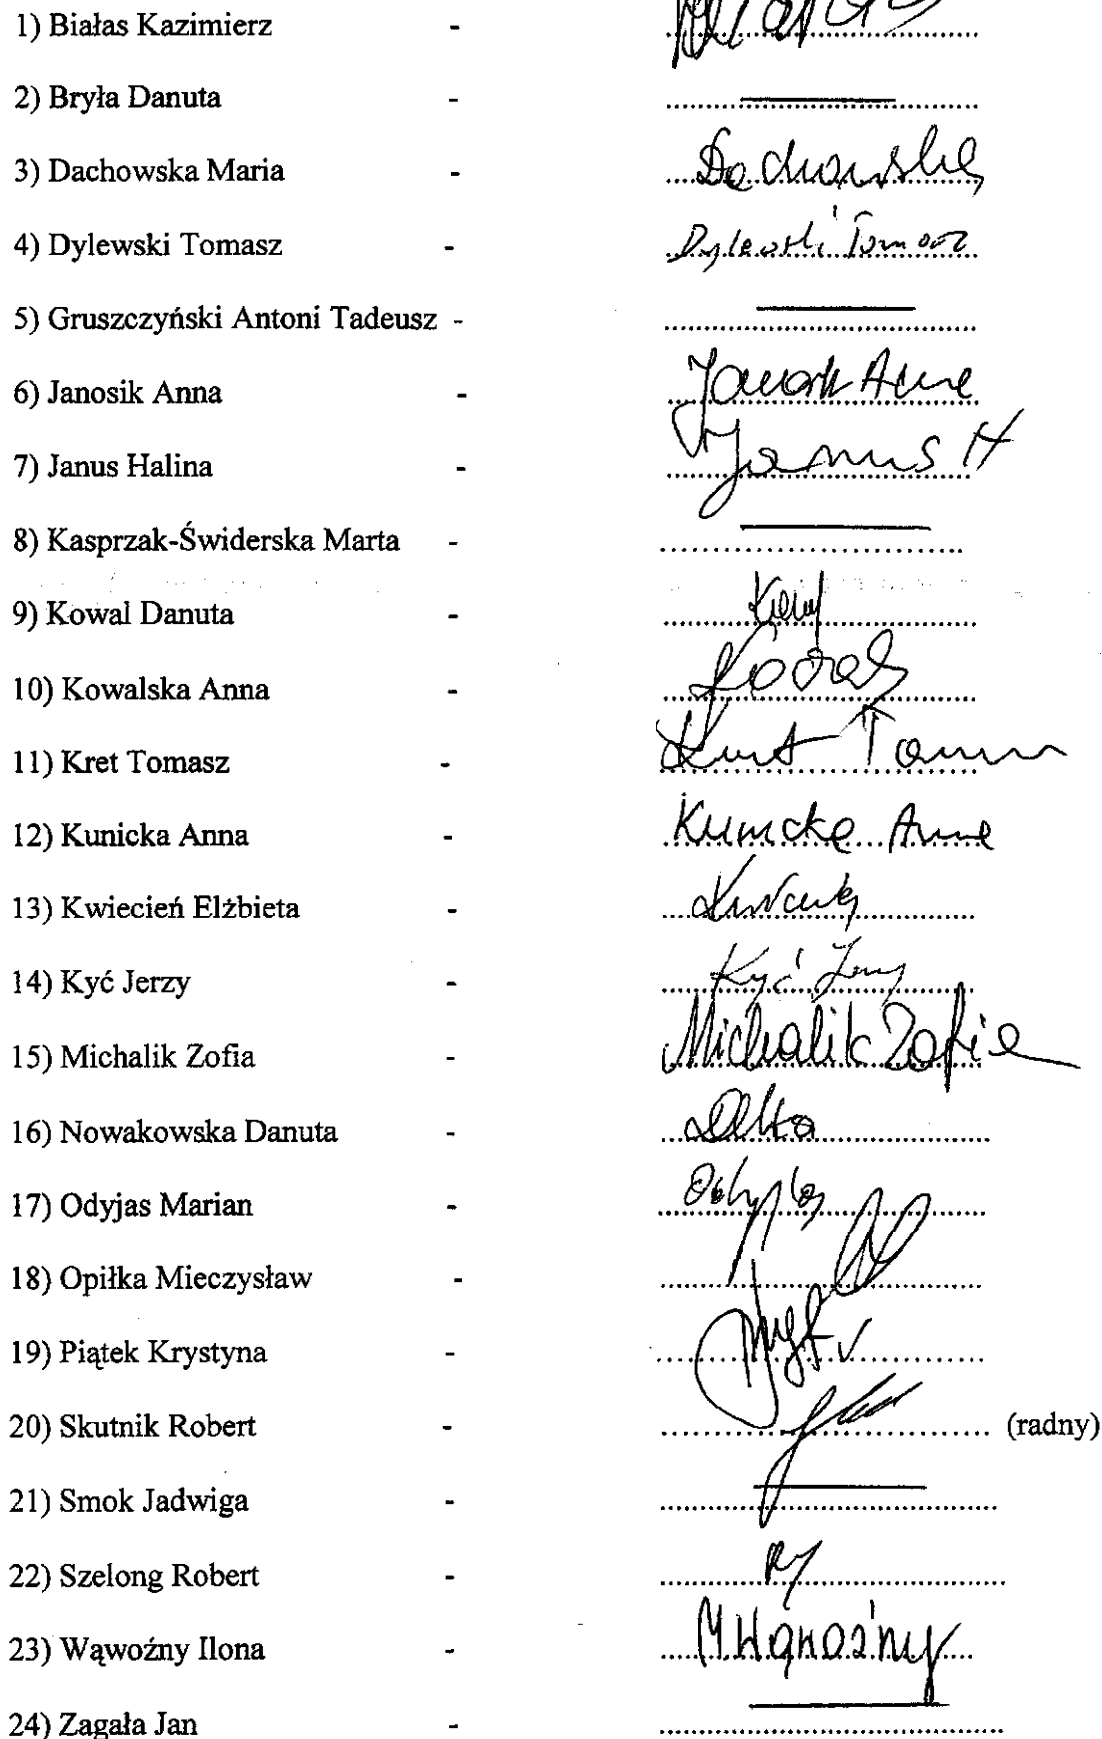 1) Białas Kazimierz -
2) Bryła Danuta -
3) Dachowska Maria - Dachowska
4) Dylewski Tomasz - Dylewski Tomasz
5) Gruszczyński Antoni Tadeusz -
6) Janosik Anna - Janosik Anna
7) Janus Halina - Janus H
8) Kasprzak-Świderska Marta -
9) Kowal Danuta -
10) Kowalska Anna -
11) Kret Tomasz -
12) Kunicka Anna - Kunicka Anna
13) Kwiecień Elżbieta -
14) Kyć Jerzy - Kyć Jerzy
15) Michalik Zofia - Michalik Zofia
16) Nowakowska Danuta -
17) Odyjas Marian - Odyjas
18) Opiłka Mieczysław -
19) Piątek Krystyna -
20) Skutnik Robert - (radny)
21) Smok Jadwiga -
22) Szelong Robert -
23) Wąwoźny Ilona - M. Wąwoźny
24) Zagała Jan -